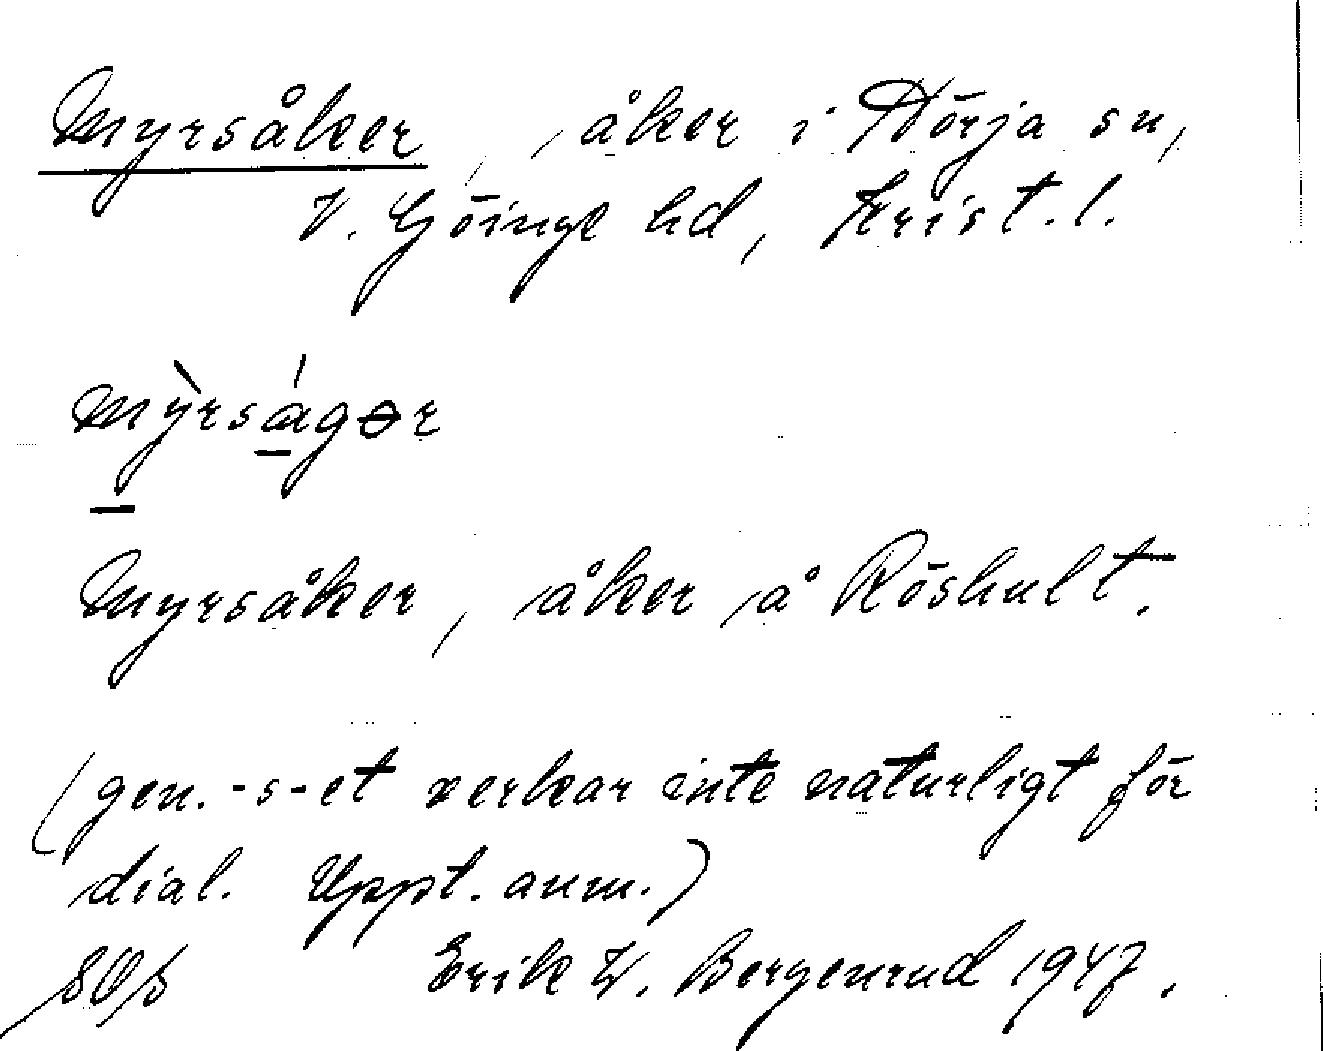 Myrsåker, åker i Hörja sn,
V. Göinge hd, Krist. l.
mỳrságər
Myrsåker, åker å Röshult.
(gen. -s-et verkar inte naturligt för
dial. Uppt. anm.)
Erik W. Bergenrud 1947.